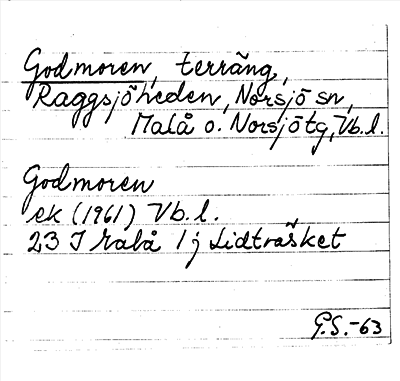 Godmoren, terräng,
Raggsjöheden, Norsjö sn,
Malå o. Norsjö tg, Vb. l.
Godmoren
ek (1961) Vb. l.
23 I Malå 1 j Lidträsket
G.S.-63